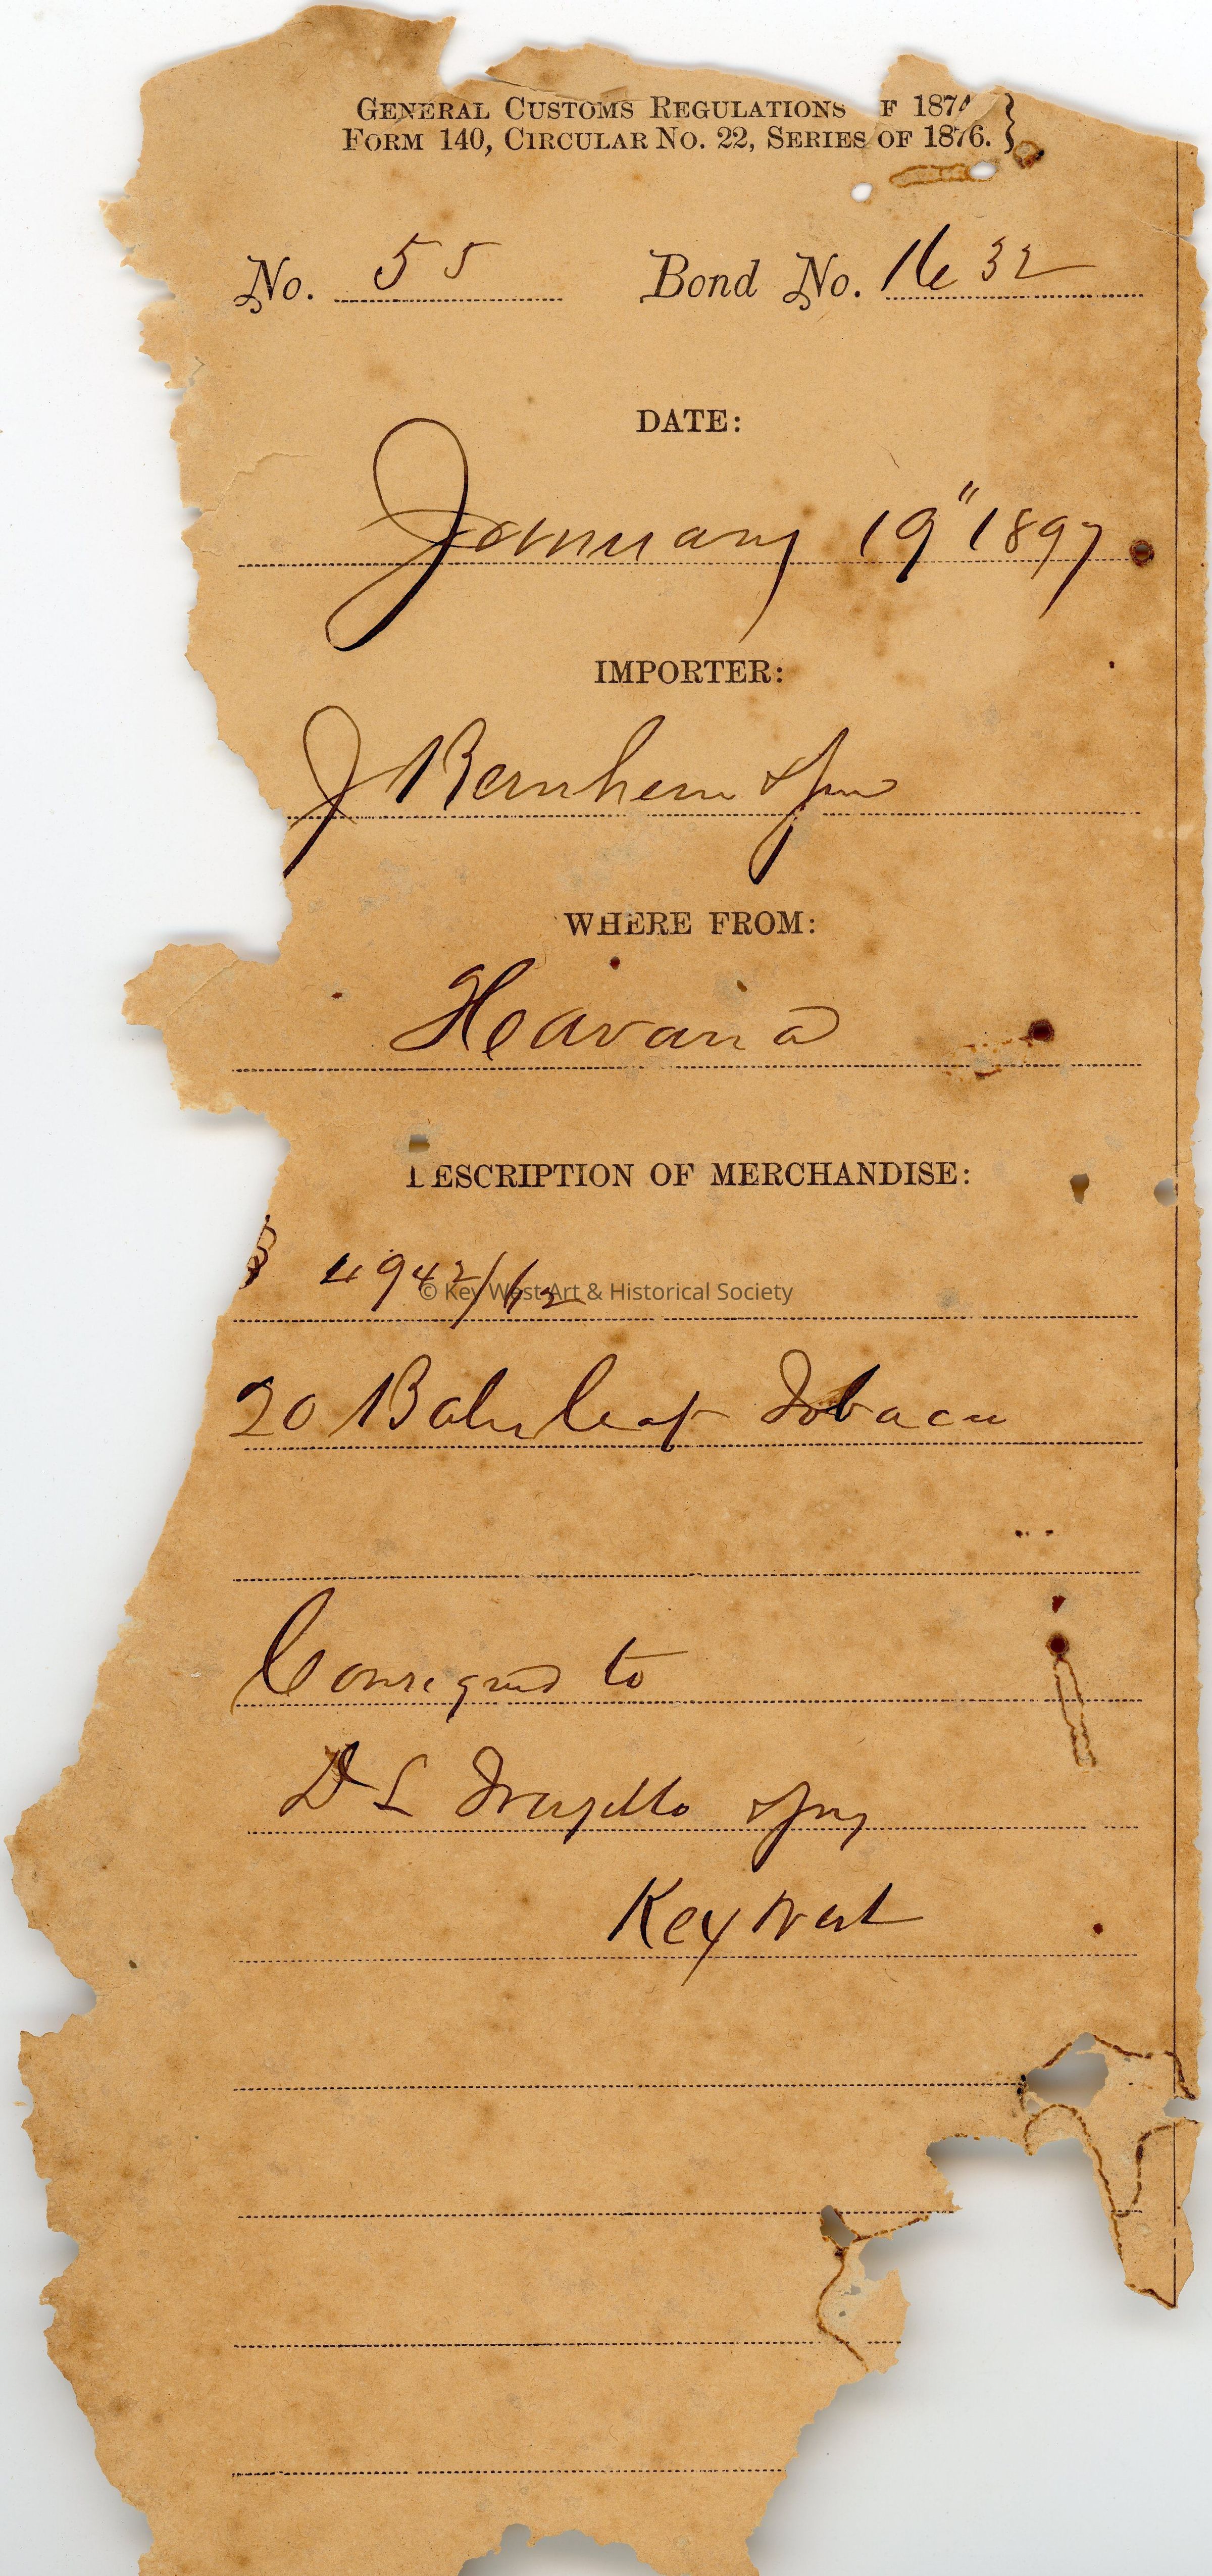 GENERAL CUSTOMS REGULATIONS F 187
FORM 140, CIRCULAR NO. 22, SERIES OF 1876. }
No. 55 Bond No. 1632
DATE:
January 19" 1897
IMPORTER:
J Bernheim & Son
WHERE FROM:
Havana
DESCRIPTION OF MERCHANDISE:
4942/62
© Key West Art & Historical Society
20 Bales leaf Tobacco
Consigned to
D L Trujillo & Sons
Key West